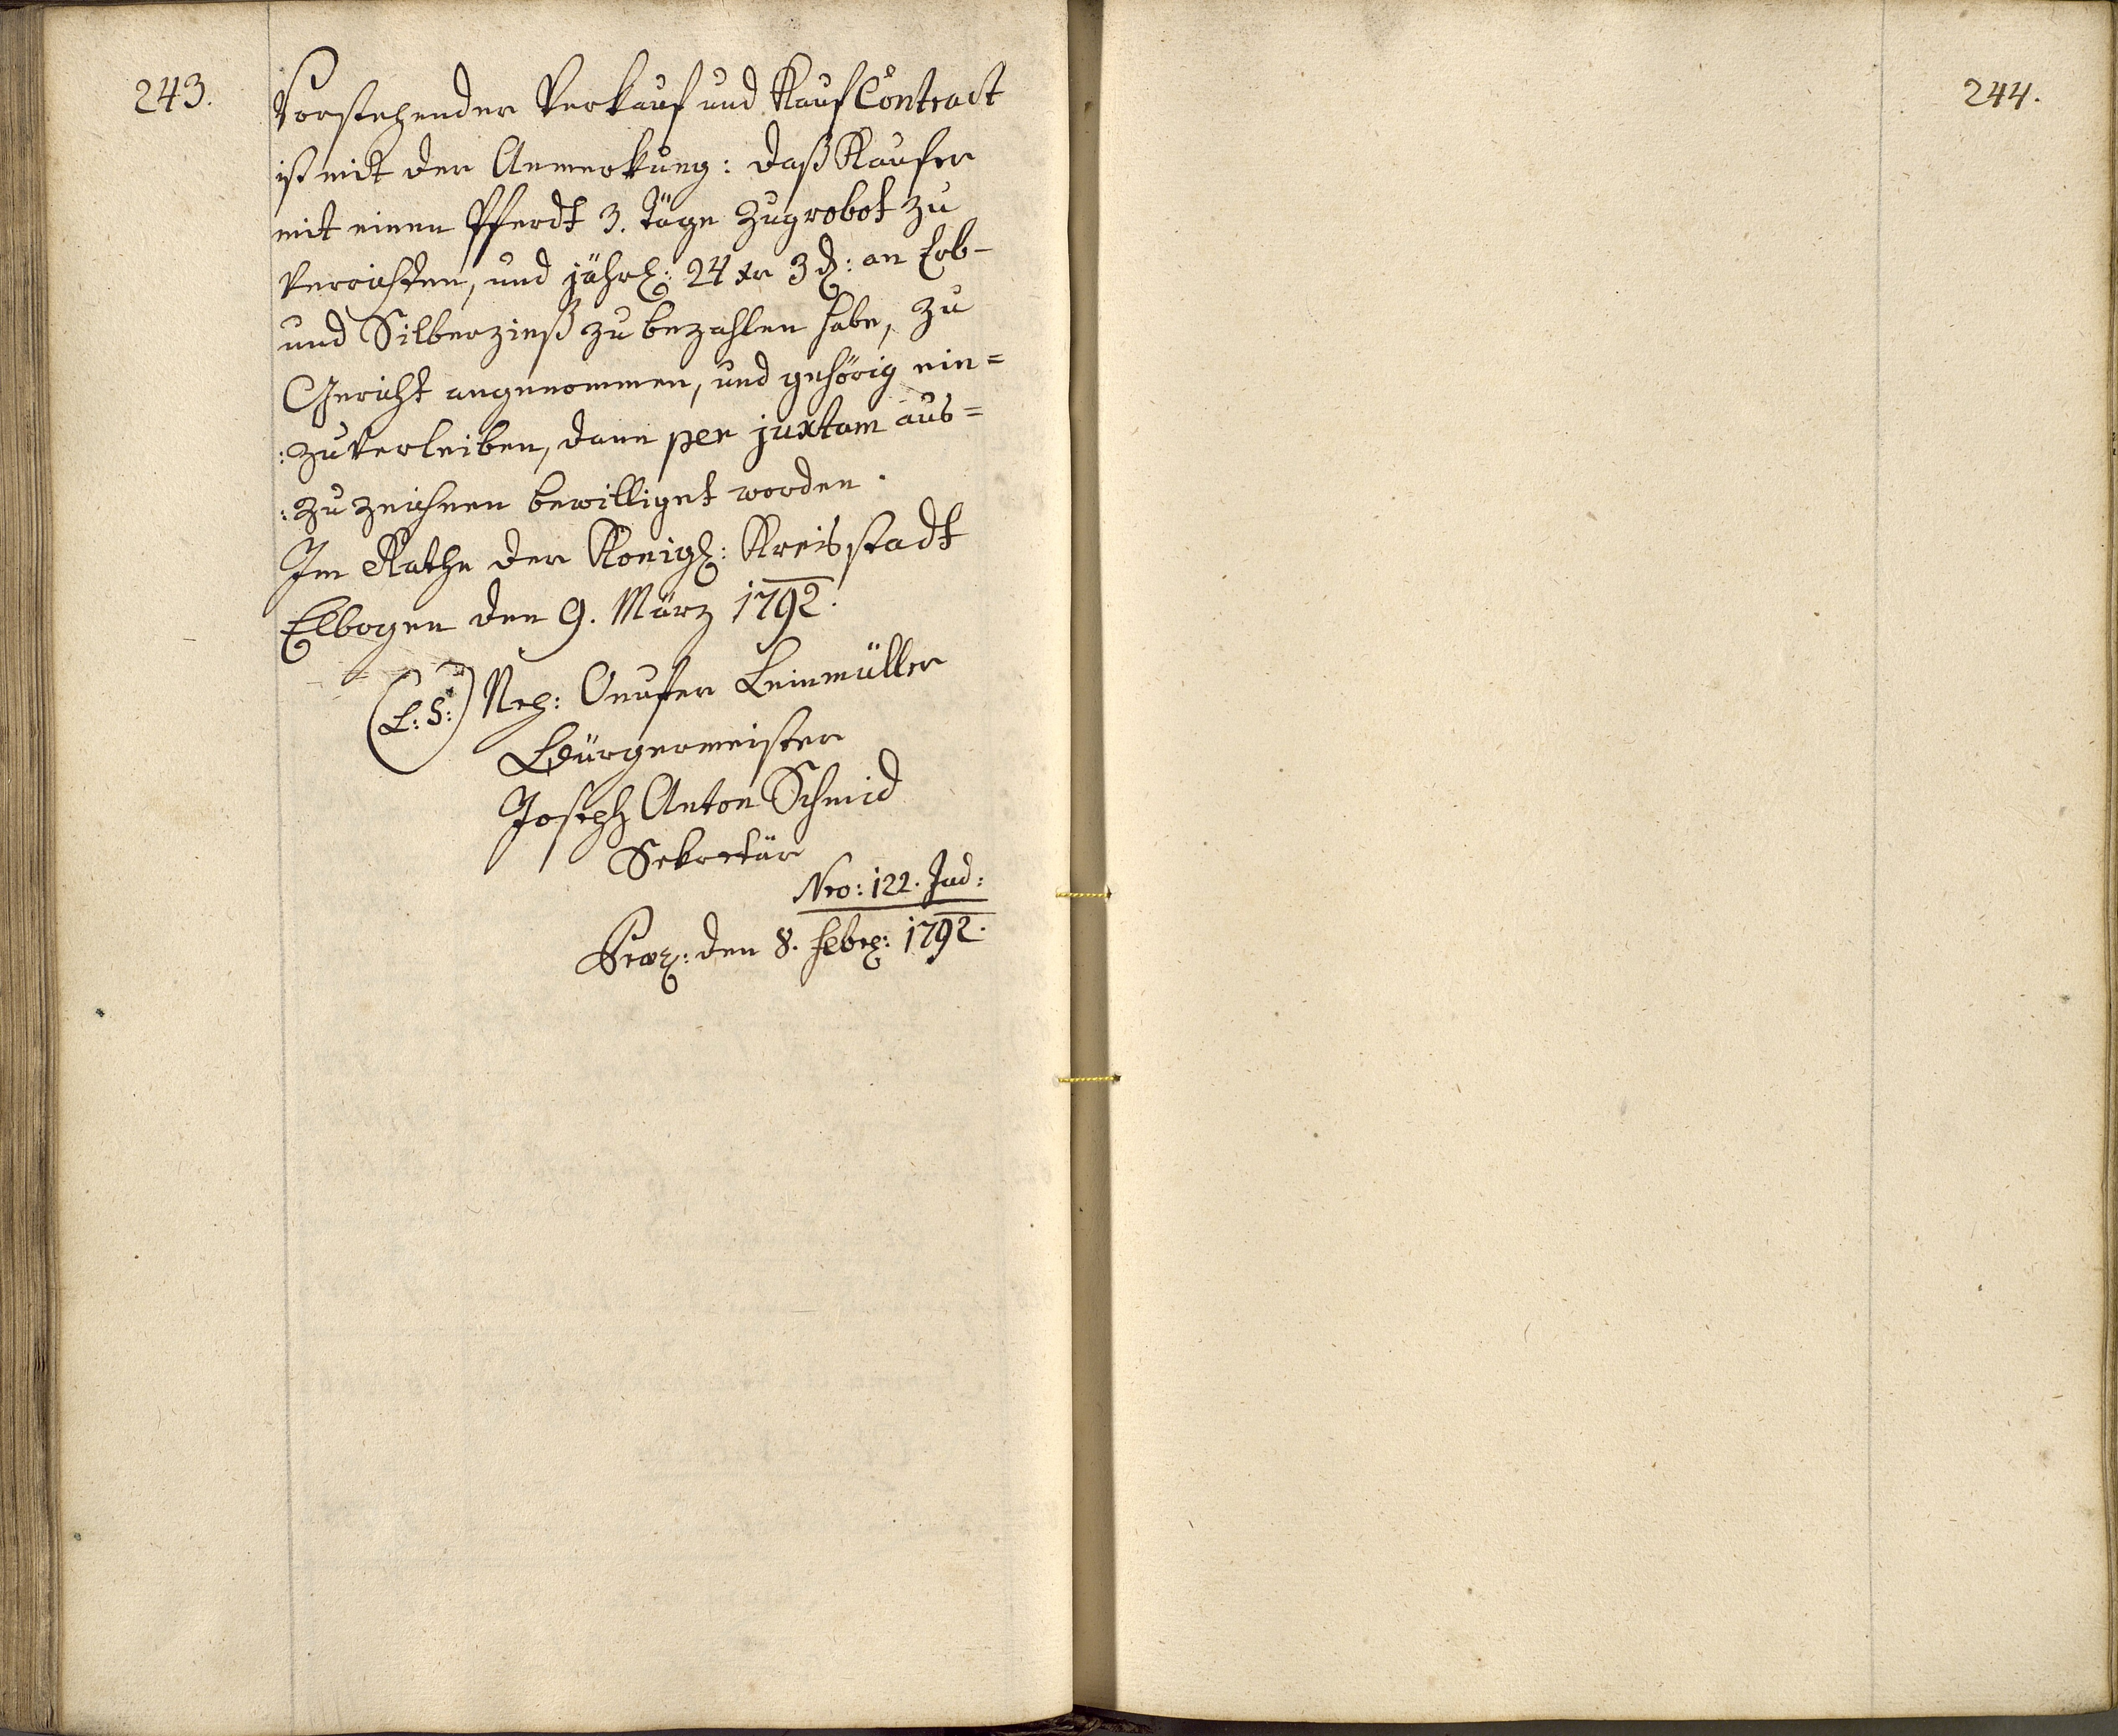 243.
Vorstehender Verkauf und Kauf Contract
ist mit der Anmerkung: daß Kaufer
mit einen Pferdt 3. Täge Zugrobot zu
verrichten, und jährl: 24 xr 3 d: an Erb-
und Silberzinß zu bezahlen habe, zu
Gericht angenommen, und gehörig ein=
:zuverleiben, dann per juxtam aus=
:zu zeichnen bewilliget worden.
Im Rathe der Königl: Kreisstadt
Elbogen den 9. März 1792.
(L: S:) Onufer Leinmüller
Bürgermeister
Joseph Anton Schmid
Sekretär
Nro: 122. Jud:
Praes: den 8. Febr: 1792.
244.